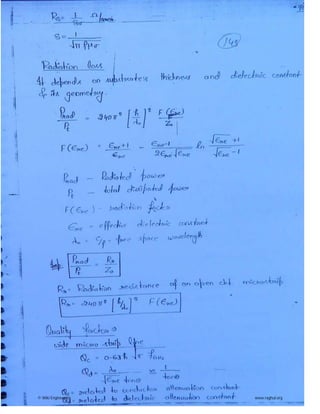 Rs = 1/δσ Ω/
δ = 1/√π f μ σ
148
Radiation loss
It depends on substrate's thickness and dielectric constant
& its geometry.
Prad/Pt = 240π² [h/λ₀]² F(Ere)/Z₀
F(Ere) = Ere+1/Ere - Ere-1/2Ere√Ere ln √Ere +1/√Ere -1
Prad - Radiated power
Pt - total dissipated power
F(Ere) - radiation factor
Ere - effective dielectric constant
λ₀ - c/f - free space wavelength
Prad/Pt = Rr/Z₀
Rr - Radiation resistance of an open ckt. microstrip
Rr = 240π² [h/λ]² F(Ere)
Quality factors
wide micro-strip line
Qc = 0.63h √σ fGHz
Qd = λ₀/√Ere tanθ ≈ 1/tanθ
Qc - related to conductor attenuation constant
Qd - related to dielectric attenuation constant
www.raghul.org